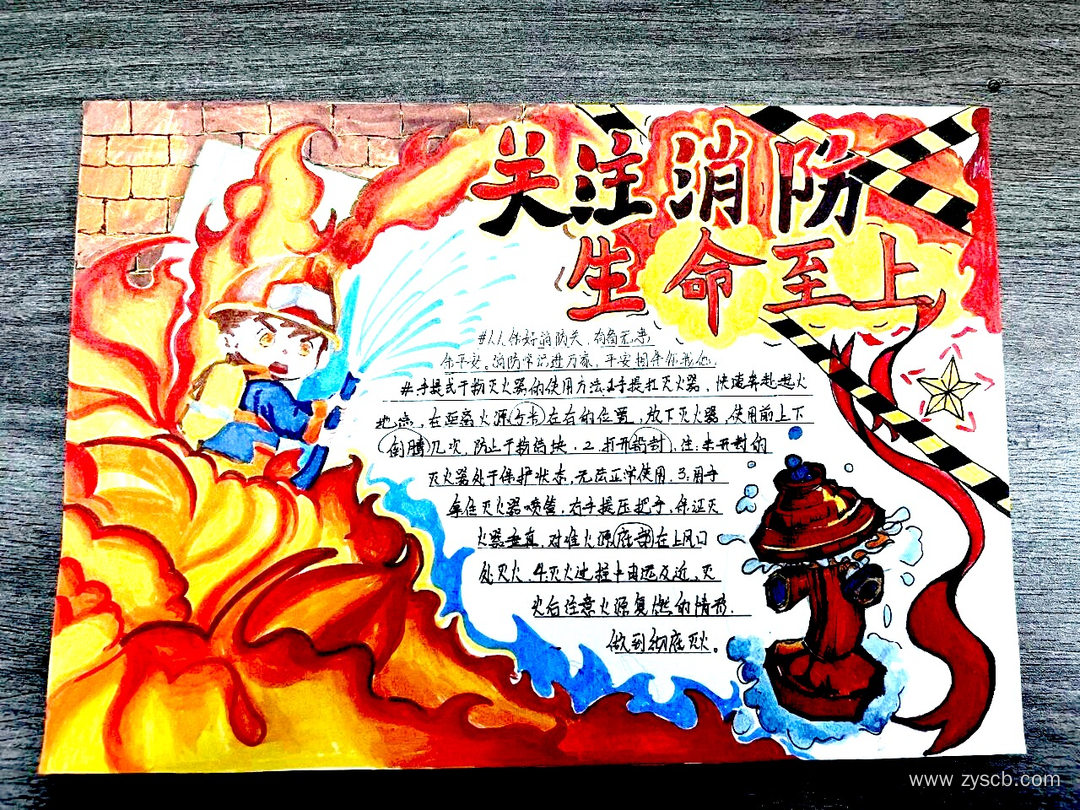 关注消防
生命至上
#1.1.你好消防员,有备无患
保平安。消防常识进万家,平安相伴你我他
#手提式干粉灭火器的使用方法:1手提扛灭火器,快速奔赴起火
地点,在距离火源左右的位置,放下灭火器,使用前上下
倒腾几次,防止干粉结块.2.打开铅封,注:未开封的
灭火器处于保护状态,无法正常使用.3.用手
拿住灭火器喷管,右手提压把手,保证灭
火器垂直,对准火源底部在上风口
处灭火.4.灭火过程中由远及近,灭
火后注意火源复燃的情形.
做到彻底灭火。
www.zyscb.com